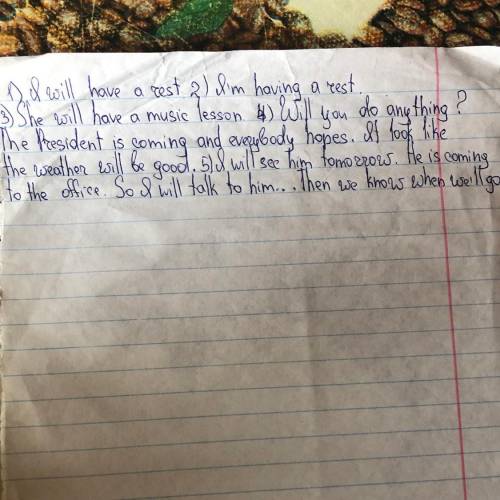 1) I will have a rest 2) I'm having a rest.
3) She will have a music lesson 4) Will you do anything?
The President is coming and everybody hopes. It look like
the weather will be good. 5) I will see him tomorrow. He is coming
to the office. So I will talk to him... Then we know when we'll go